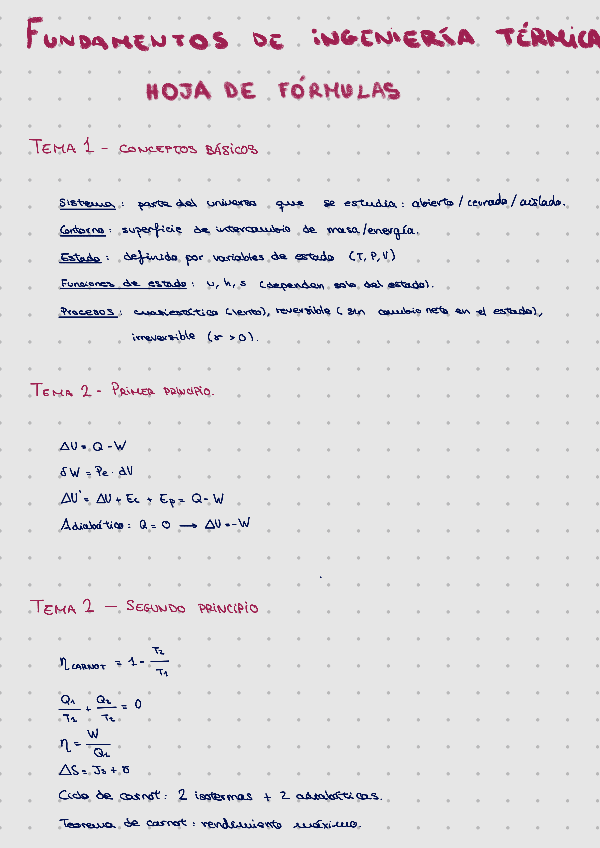 FUNDAMENTOS DE INGENIERÍA TÉRMICA
HOJA DE FÓRMULAS
TEMA 1 - CONCEPTOS BÁSICOS
Sistema: parte del universo que se estudia: abierto / cerrado / aislado.
Contorno: superficie de intercambio de masa/energía.
Estado: definido por variables de estado (T, P, V)
Funciones de estado: u, h, s (dependen solo del estado).
Procesos: cuasiestático (lento), reversible (sin cambio neto en el estado),
irreversible (σ > 0).
TEMA 2 - PRIMER PRINCIPIO.
ΔU = Q - W
δW = Pe · dV
ΔU' = ΔU + Ec + Ep = Q - W
Adiabático: Q = 0 → ΔU = -W
TEMA 2 — SEGUNDO PRINCIPIO
η CARNOT = 1 - T2/T1
Q1/T1 + Q2/T2 = 0
η = W/Q1
ΔS = Js + σ
Ciclo de carnot: 2 isotermas + 2 adiabáticas.
Teorema de carnot: rendimiento máximo.